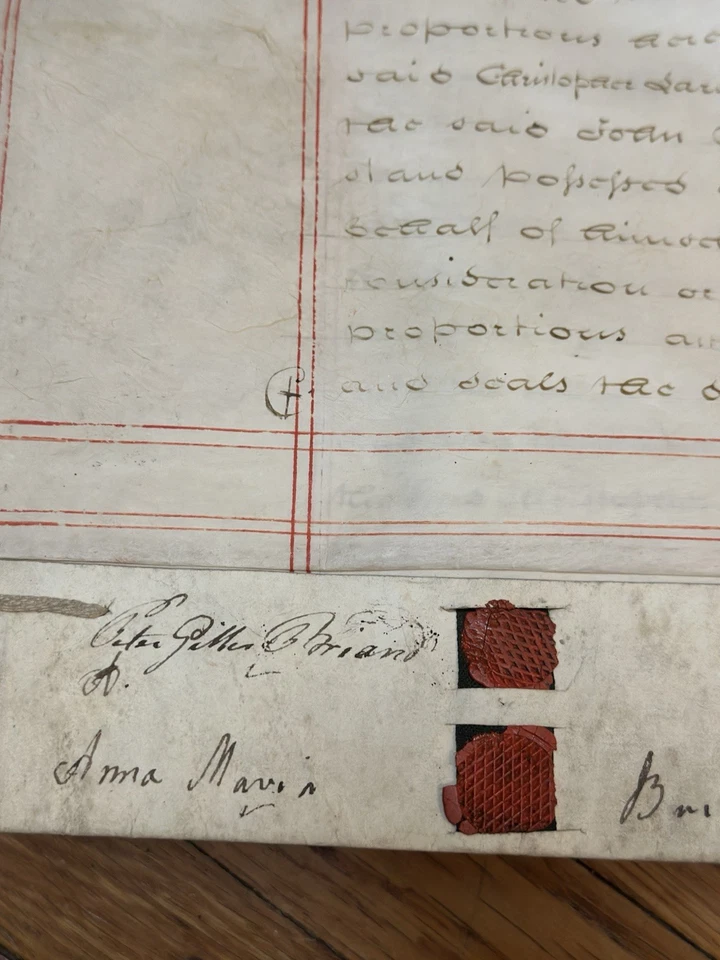 proportions
said Christopher
the said John
stand possessed
behalf of
consideration or
proportions
and seals the
Peter Gilles Briand
Anna Maria